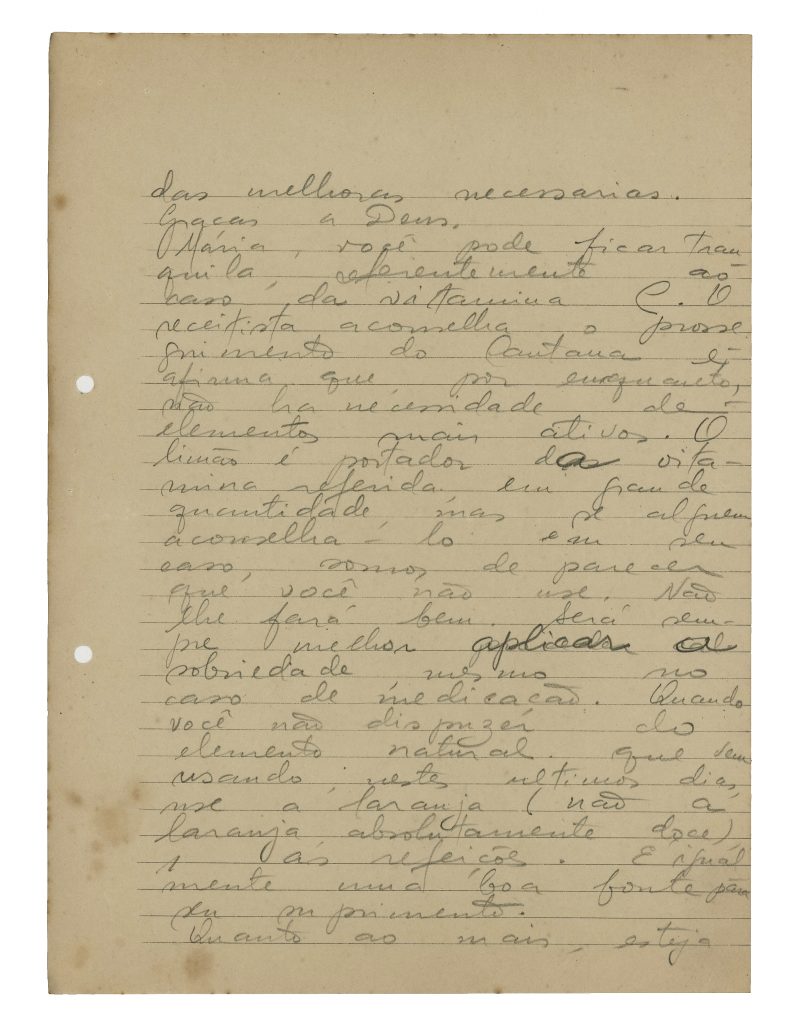 das melhoras necessarias.
Graças a Deus.
Mária, você pode ficar tran
quila, referentemente ao
caso da vitamina C. O
receitista aconselha o prosse
guimento do Cantana e
afirma que por enquanto,
não ha necessidade de
elementos mais ativos. O
limão é portador da vita-
mina referida em grande
quantidade mas se alguem
aconselha-lo em seu
caso, somos de parecer
que você não use. Não
lhe fará bem. Será sem-
pre melhor aplicar a
sobriedade mesmo no
caso de medicação. Quando
você não dispuzér do
elemento natural que vem
usando nestes ultimos dias,
use a laranja (não a
laranja absolutamente doce)
ás refeições. E igual
mente uma boa fonte para
seu suprimento.
Quanto ao mais, esteja